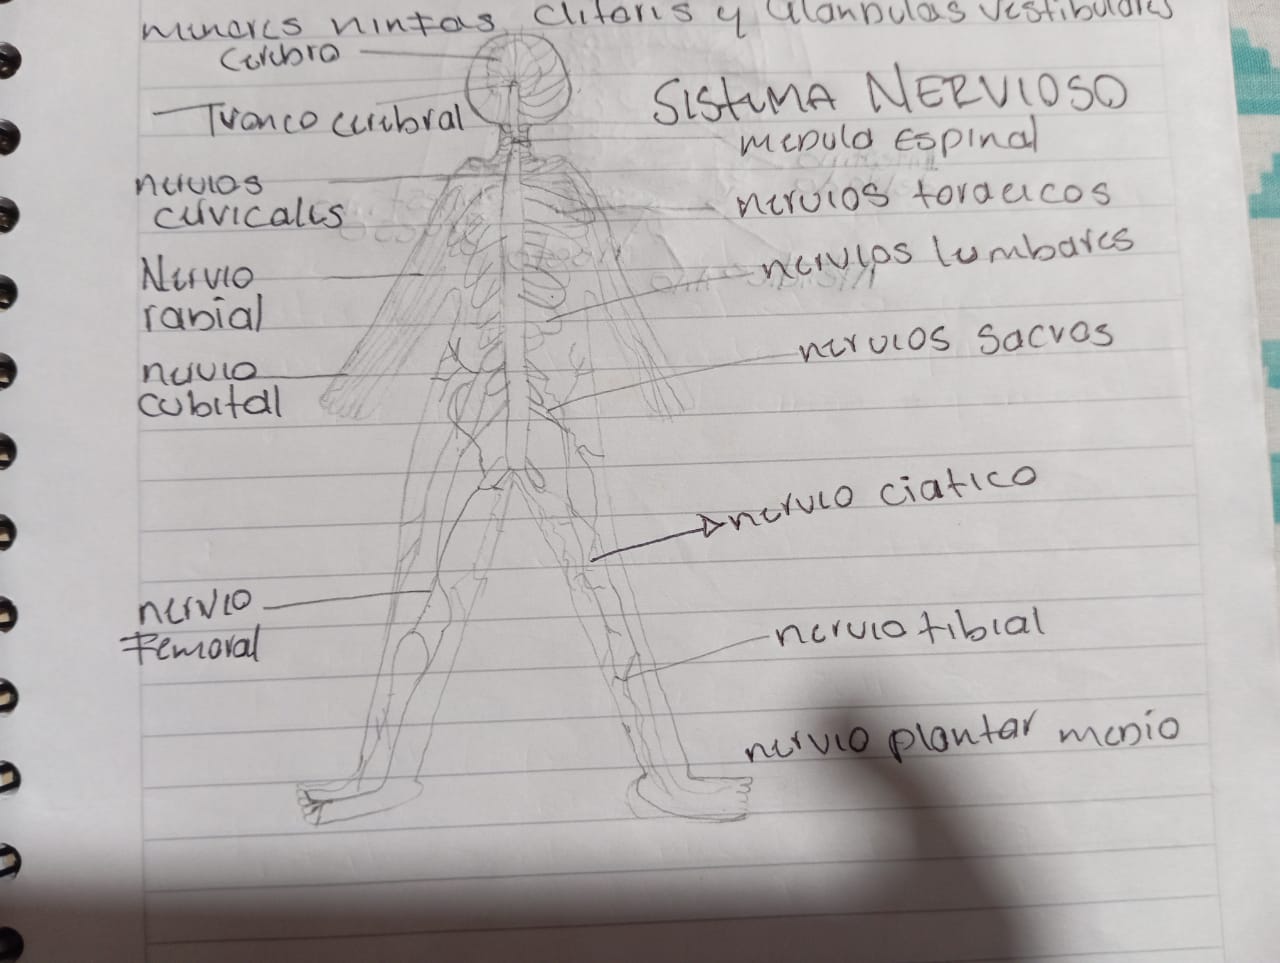 menores ninfas clitoris y Glandulas vestibulares
cerebro
SISTEMA NERVIOSO
Tronco cerebral
medula espinal
nervios
cervicales
nervios toracicos
nervios lumbares
Nervio
radial
nervios sacros
nervio
cubital
nervio ciatico
nervio
Femoral
nervio tibial
nervio plantar medio